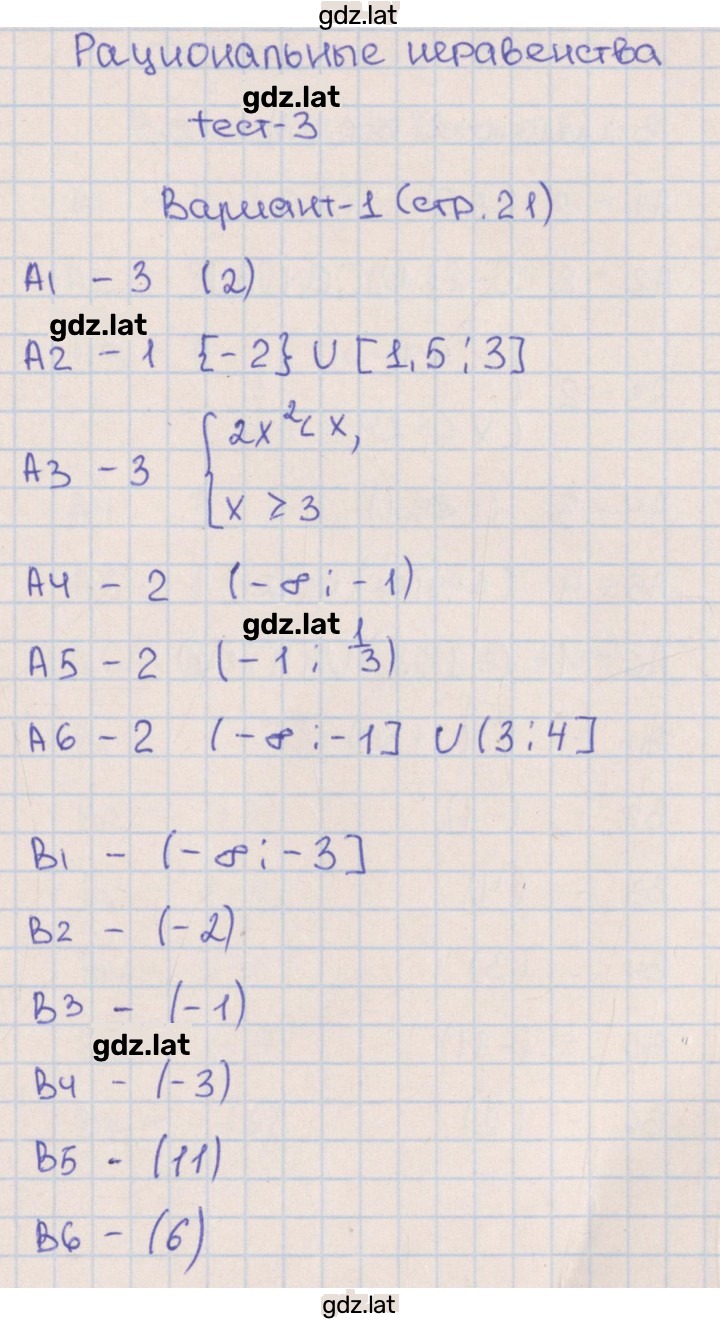 gdz.lat
Рациональные неравенства
gdz.lat
тест-3
Вариант-1 (стр. 21)
А1 - 3 (2)
gdz.lat
А2 - 1 {-2} ∪ [1,5 ; 3]
А3 - 3 { 2x² < x,
x ≥ 3
А4 - 2 (-∞ ; -1)
gdz.lat
А5 - 2 (-1 ; 1/3)
А6 - 2 (-∞ ; -1] ∪ (3 ; 4]
В1 - (-∞ ; -3]
В2 - (-2)
В3 - (-1)
gdz.lat
В4 - (-3)
В5 - (11)
В6 - (6)
gdz.lat